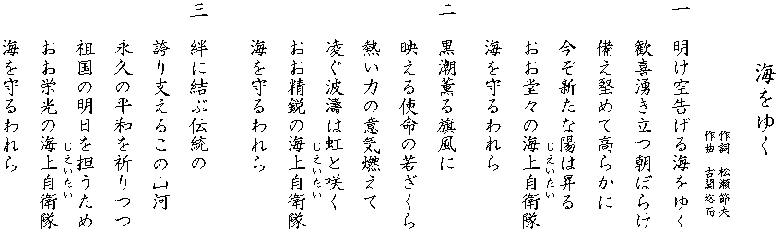 海をゆく
作詞　松瀬節夫
作曲　古関裕而
一
明け空告げる海をゆく
歓喜湧き立つ朝ぼらけ
備え堅めて高らかに
今ぞ新たな陽は昇る
おお堂々の海上自衛隊
じえいたい
海を守るわれら
二
黒潮薫る旗風に
映える使命の若ざくら
熱い力の意気燃えて
凌ぐ波濤は虹と咲く
おお精鋭の海上自衛隊
じえいたい
海を守るわれら
三
絆に結ぶ伝統の
誇り支えるこの山河
永久の平和を祈りつつ
祖国の明日を担うため
おお栄光の海上自衛隊
じえいたい
海を守るわれら